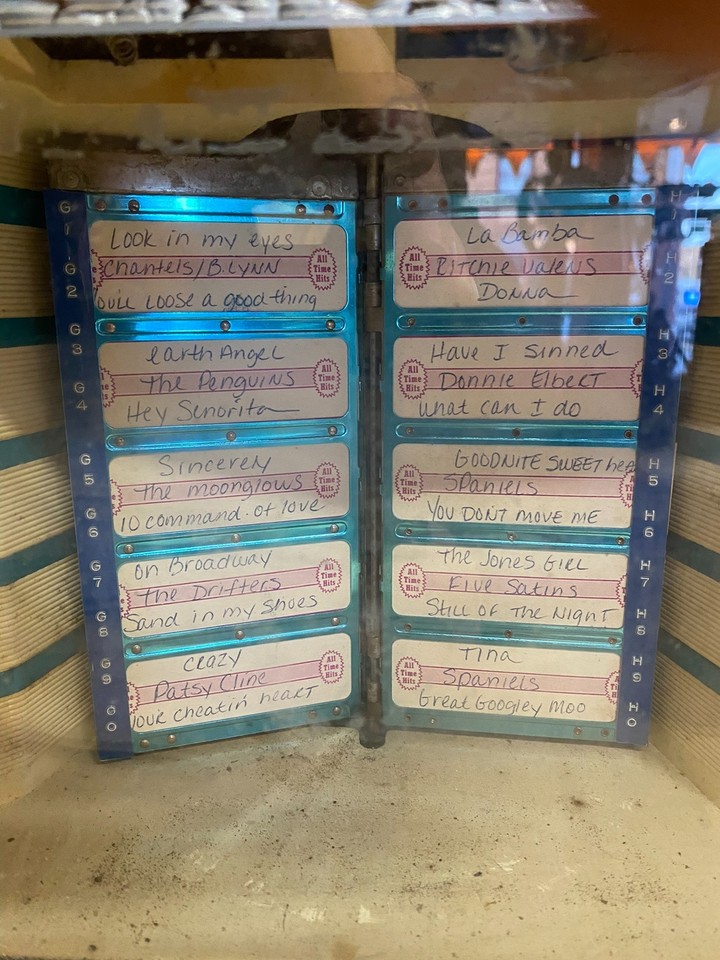 G
1
G
2
G
3
G
4
G
5
G
6
G
7
G
8
G
9
G
0
Look in my eyes
Chantels/B.LYNN
All Time Hits
ou'll Loose a good thing
earth Angel
The Penguins
All Time Hits
Hey Senorita
Sincerely
The moonglows
All Time Hits
10 command. of love
on Broadway
The Drifters
All Time Hits
Sand in my Shoes
crazy
Patsy Cline
All Time Hits
your cheatin' heart
La Bamba
All Time Hits
Ritchie Valens
Donna
Have I Sinned
All Time Hits
Donnie Elbert
what can I do
GOODNITE SWEET hea
All Time Hits
Spaniels
YOU DON'T MOVE ME
The Jones Girl
All Time Hits
Five Satins
Still of The Night
Tina
All Time Hits
Spaniels
Great Googley Moo
H
1
H
2
H
3
H
4
H
5
H
6
H
7
H
8
H
9
H
0